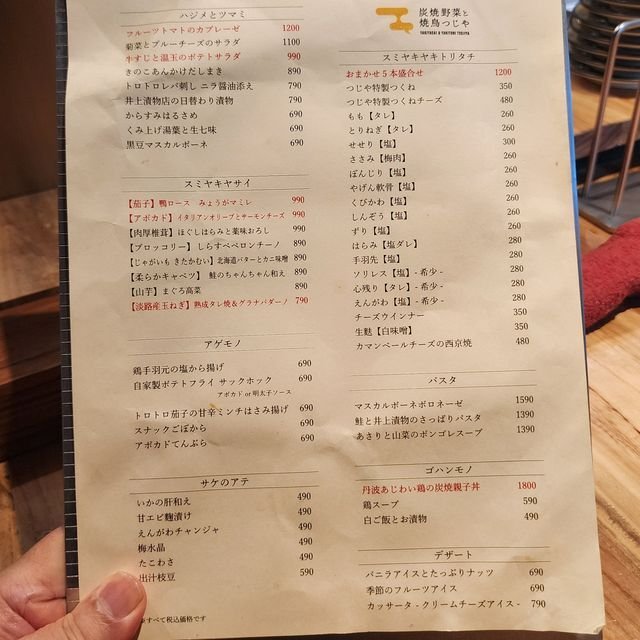 ハジメとツマミ
フルーツトマトのカプレーゼ 1200
菊菜とブルーチーズのサラダ 1100
牛すじと温玉のポテトサラダ 990
きのこあんかけだしまき 890
トロトロレバ刺し ニラ醤油添え 790
井上漬物店の日替わり漬物 790
からすみはるさめ 690
くみ上げ湯葉と生七味 690
黒豆マスカルポーネ 690
スミヤキヤサイ
【茄子】鴨ロース みょうがマミレ 990
【アボカド】イタリアンオリーブとサーモンチーズ 990
【肉厚椎茸】ほぐしはらみと薬味おろし 990
【ブロッコリー】しらすペペロンチーノ 890
【じゃがいも きたかむい】北海道バターとカニ味噌 890
【柔らかキャベツ】 鮭のちゃんちゃん和え 890
【山芋】まぐろ高菜 890
【淡路産玉ねぎ】熟成タレ焼&グラナパダーノ 790
アゲモノ
鶏手羽元の塩から揚げ 690
自家製ポテトフライ サックホック 690
アボカド or 明太子ソース
トロトロ茄子の甘辛ミンチはさみ揚げ 690
スナックごぼから 690
アボカドてんぷら 690
サケのアテ
いかの肝和え 490
甘エビ麹漬け 490
えんがわチャンジャ 490
梅水晶 490
たこわさ 490
出汁枝豆 590
すべて税込価格です
炭焼野菜と
焼鳥つじや
YAKIYASAI & YAKITORI TSUJIYA
スミヤキヤキトリタチ
おまかせ5本盛合せ 1200
つじや特製つくね 350
つじや特製つくねチーズ 480
もも【タレ】 260
とりねぎ【タレ】 260
せせり【塩】 300
ささみ【梅肉】 260
ぼんじり【塩】 260
やげん軟骨【塩】 260
くびかわ【塩】 260
しんぞう【塩】 260
ずり【塩】 260
はらみ【塩ダレ】 280
手羽先【塩】 280
ソリレス【塩】- 希少 - 280
心残り【タレ】- 希少 - 280
えんがわ【塩】- 希少 - 280
チーズウインナー 350
生麩【白味噌】 350
カマンベールチーズの西京焼 480
パスタ
マスカルポーネボロネーゼ 1590
鮭と井上漬物のさっぱりパスタ 1390
あさりと山菜のボンゴレスープ 1390
ゴハンモノ
丹波あじわい鶏の炭焼親子丼 1800
鶏スープ 590
白ご飯とお漬物 490
デザート
バニラアイスとたっぷりナッツ 690
季節のフルーツアイス 690
カッサータ - クリームチーズアイス - 790